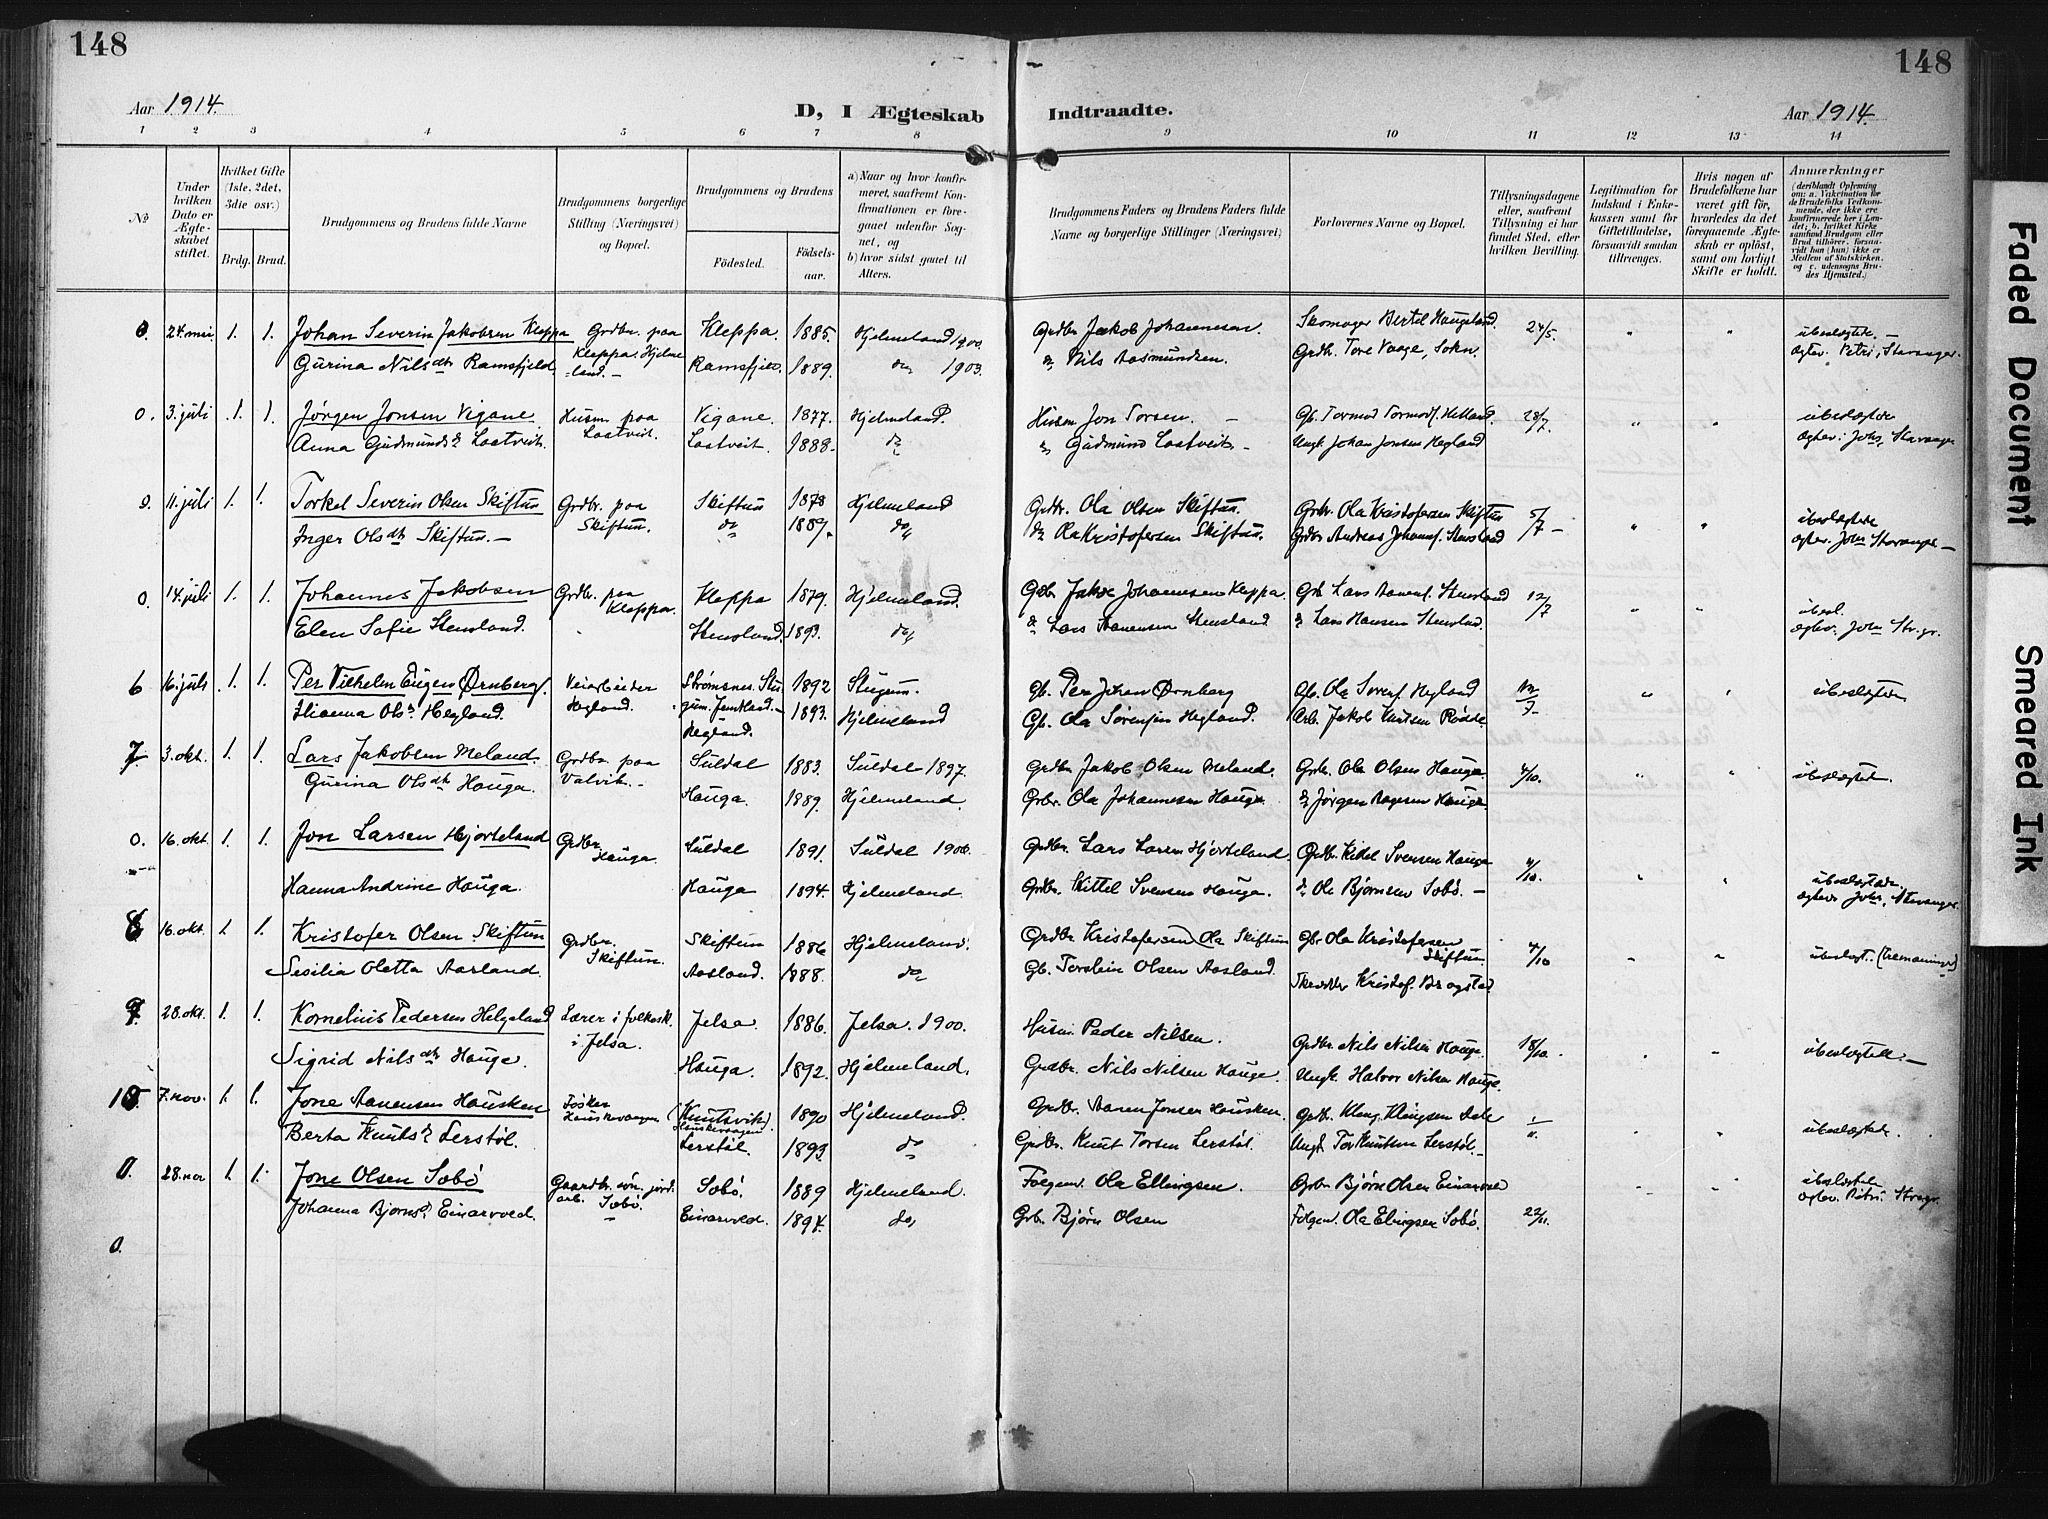 148
148
Aar 1914.
D, I Ægteskab Indtraadte.
Aar 1914.
1 2 3 4 5 6 7 8 9 10 11 12 13 14
No
Under hvilken Dato er Ægteskabet stiftet.
Hvilket Gifte (1ste, 2det, 3die osv.)
Brdg. Brud.
Brudgommens og Brudens fulde Navne
Brudgommens borgerlige Stilling (Næringsvei) og Bopæl.
Brudgommens og Brudens
Fødested.
Fødselsaar.
a) Naar og hvor konfirmeret, saafremt Konfirmationen er foregaaet udenfor Sognet, og
b) hvor sidst gaaet til Alters.
Brudgommens Faders og Brudens Faders fulde Navne og borgerlige Stillinger (Næringsvei)
Forlovernes Navne og Bopæl.
Tillysningsdagene eller, saafremt Tillysning ei har fundet Sted, efter hvilken Bevilling.
Legitimation for Indskud i Enkekassen samt for Giftetilladelse, forsaavidt saadan tiltrænges.
Hvis nogen af Brudefolkene har været gift før, hvorledes da det foregaaende Ægteskab er opløst, samt om lovligt Skifte er holdt.
Anmærkninger
0. 24. mai. 1. 1. Johan Severin Jakobsen Kleppa Grdbr. paa Kleppa, Hjelmeland.- Kleppa 1885. Hjelmeland 1900. Grdbr Jakob Johannesen. Skomager Bertel Haugeland. 24/5. " " ubeslægtede. -
Gurina Nilsdtr Ramsfjeld. Ramsfjeld. 1889. do 1903. do Nils Aasmundsen. Grdb. Tore Vaage, Sokn. Petri, Stavanger.
0. 3. juli 1. 1. Jørgen Jonsen Vigane. Husm paa Lastveit. Vigane. 1877. Hjelmeland. Husm Jon Torsen. - Gb. Tormod Tormods. Hetland. 28/7. " " ubeslægtede
Anna Gudmundsdr Lastveit. Lastveit. 1888. do do Gudmund Lastveit - Ungk Johan Jonsen Hegland Johs, Stavanger
0. 11. juli 1. 1. Torkel Severin Olsen Skiftun Grdbr. paa Skiftun. Skiftun 1878 Hjelmeland Grdbr. Ola Olsen Skiftun. Grbr. Ola Kristofersen Skiftun 5/7 - " " ubeslægtede
Inger Olsdtr Skiftun. - do 1889. do, do Ola Kristofersen Skiftun. Grdbr Andreas Johannes. Stensland Johs Stavanger -
0. 14. juli 1. 1. Johannes Jakobsen Grdbr. paa Kleppa. Kleppa 1879. Hjelmeland. Gdbr. Jakob Johannesen Kleppa. Grb Lars Aanens. Stensland 12/7 " " ubesl.
Elen Sofie Stensland. Stensland. 1893. do, do Lars Aanensen Stensland. do Lars Hansen Stensland. Johs Str.gr.
6 16. juli 1. 1. Per Vilhelm Eugen Ørnberg. Veiarbeider Hegland. Strømsnes. Stugum. Jemtland.- 1892 Stugum. Gb. Per Johan Ørnberg Gb. Ola Sovers. Hegland 12/7- " " ubeslægtede
Hianna Olsdr Hegland. Hegland. 1893. Hjelmeland Gb. Ola Sørensen Hegland. Arb. Jakob Knutsen Rødde.
7. 3. okt. 1. 1. Lars Jakobsen Meland. Grdbr paa Valvik.- Suldal 1883. Suldal 1897. Grdbr Jakob Olsen Meland. Grbr. Ola Olsen Hauga 4/10. " " ubeslægtede.
Gurina Olsdtr Hauga. Hauga. 1889. Hjelmeland. Grbr. Ola Johannesen Hauga. do Jørgen Aagesen Hauga.
0. 16. okt. 1. 1. Jon Larsen Hjorteland Grdbr. Hauga. Suldal 1891. Suldal 1906. Grdbr. Lars Larsen Hjorteland. Grdbr. Kitel Svensen Hauga 4/10. " " ubeslægtede.
Hanna Andrine Hauga. Hauga 1894. Hjelmeland. Grdbr. Kittel Svensen Hauga. do Ole Bjørnsen Sobø. - Johs, Stavanger
8 16. okt. 1. 1. Kristofer Olsen Skiftun Grdbr. Skiftun. Skiftun 1886 Hjelmeland. Grdbr Kristofersen Ola Skiftun Gbr Ola Kristofersen Skiftun. 4/10 " " ubeslægt.
Sesilia Oletta Aasland. Aasland. 1888. do Gb. Torstein Olsen Aasland. Kristof. Bragstad
9. 28. okt. 1. 1. Kornelius Pedersen Helgeland Lærer i folkesk. i Jelsa. Jelsa. 1886. Jelsa. 1900. Husm Peder Nilsen. Grdbr. Nils Nilsen Hauge. 18/10. " " ubeslægtede. -
Sigrid Nilsdtr Hauge. Hauga. 1892. Hjelmeland. Grdbr. Nils Nilsen Hauge. Ungk. Halvor Nilsen Hauge.
10. 7. nov. 1. 1. Jone Aanensen Hausken Fisker 1890 Hjelmeland. Grdbr. Aanen Jonsen Hausken. Grdb. Klaug Klaugsen Dale 1/11. " " ubeslægtede.
Berta Knutsdr Lerstøl. Lerstøl. 1893. do Grdbr. Knut Torsen Lerstøl. Ungk. Tor Knutsen Lerstøl.-
0. 28. nov 1. 1. Jone Olsen Sobø Gaardbr. søn, jord. arb. Sobø. Sobø. 1889 Hjelmeland. Folgem. Ola Ellingsen. Grbr Bjørn Olsen Einarvoll " " ubeslægtede
Johanna Bjørnsdr Einarvoll. Einarvoll. 1894. do, Grb. Bjørn Olsen Folgem Ola Elingsen Sobø. 22/11. Petri Stvgr.
0.
Faded Document
Smeared Ink